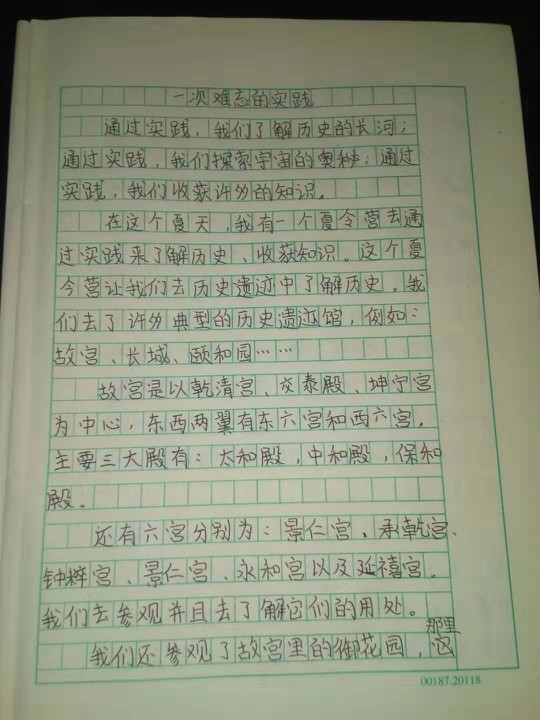 一次难忘的实践
通过实践，我们了解历史的长河；
通过实践，我们探索宇宙的奥秘；通过
实践，我们收获许多的知识。
在这个夏天，我有一个夏令营去通
过实践来了解历史、收获知识。这个夏
令营让我们去历史遗迹中了解历史。我
们去了许多典型的历史遗迹馆，例如：
故宫、长城、颐和园……
故宫是以乾清宫、交泰殿、坤宁宫
为中心，东西两翼有东六宫和西六宫，
主要三大殿有：太和殿，中和殿，保和
殿。
还有六宫分别为：景仁宫、承乾宫、
钟粹宫、景仁宫、永和宫以及延禧宫。
我们去参观并且去了解它们的用处。
那里
我们还参观了故宫里的御花园，
00187.20118